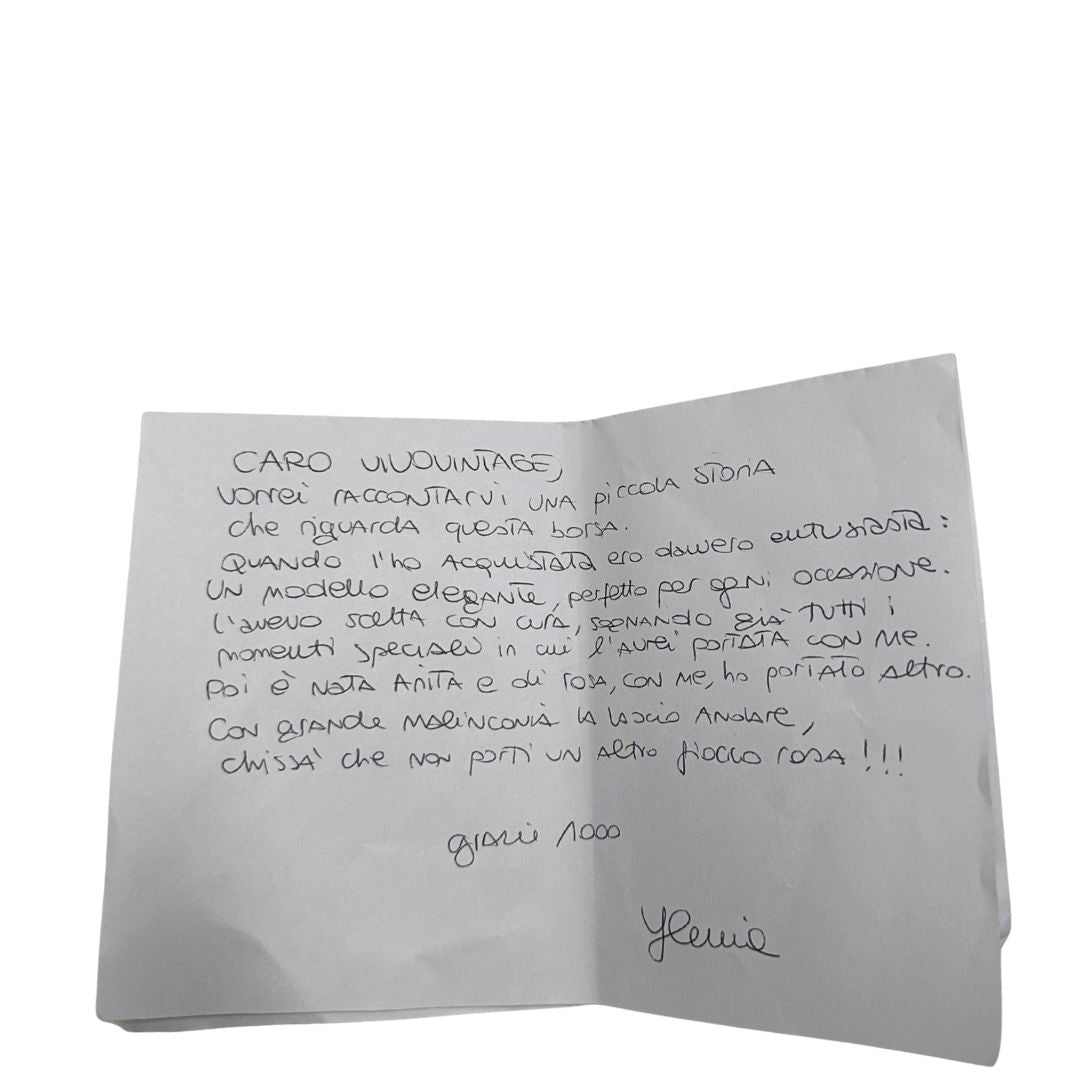 CARO VIVOVINTAGE,
vorrei raccontarvi una piccola storia
che riguarda questa borsa.
Quando l'ho acquistata ero davvero entusiasta:
un modello elegante, perfetto per ogni occasione.
L'avevo scelta con cura, sognando già tutti i
momenti speciali in cui l'avrei portata con me.
Poi è nata Anita e di rosa, con me, ho portato altro.
Con grande malinconia la lascio andare,
chissà che non porti un altro fiocco rosa!!!
grazie 1000
Ylenia